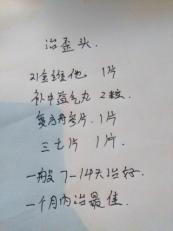 治歪头.
21金维他. 1片
补中益气丸 2粒
复方丹参片. 1片
三七片 1片.
一般7-14天治好.
一个月内治最佳.